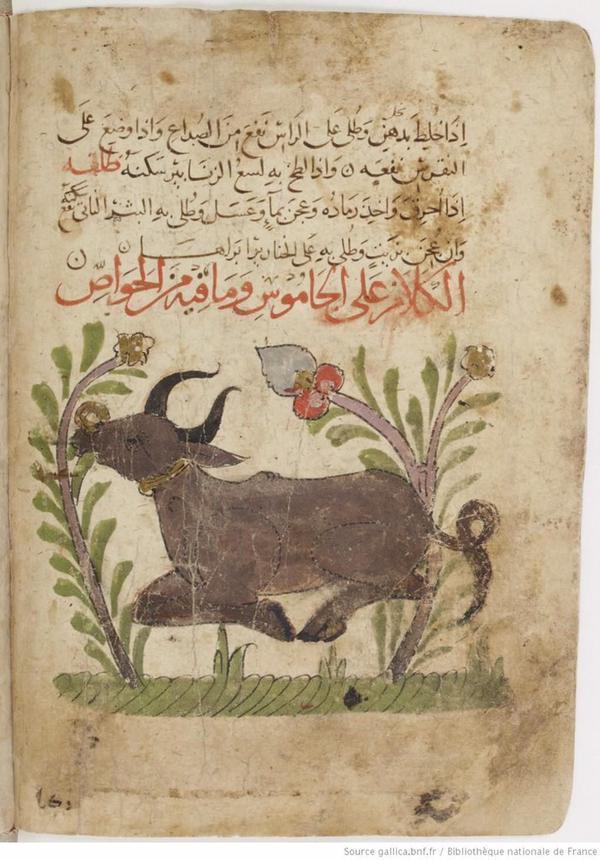 اذا خلط بدهن وطلى على الراس نفع من الصداع واذا وضع على
النقرس نفعه ن واذا لطخ به لسع الزنابير سكنه ظلفه
اذا احرق واخذ رماده وعجن بماء وعسل وطلى به البثر الناتي نفع
وان عجن بزيت وطلى به على الخنازير ابراها ن
الكلام على الجاموس وما فيه من الخواص
Source gallica.bnf.fr / Bibliothèque nationale de France